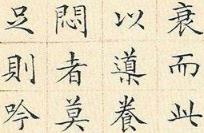 衰而此
以導養
悶者莫
足則吟